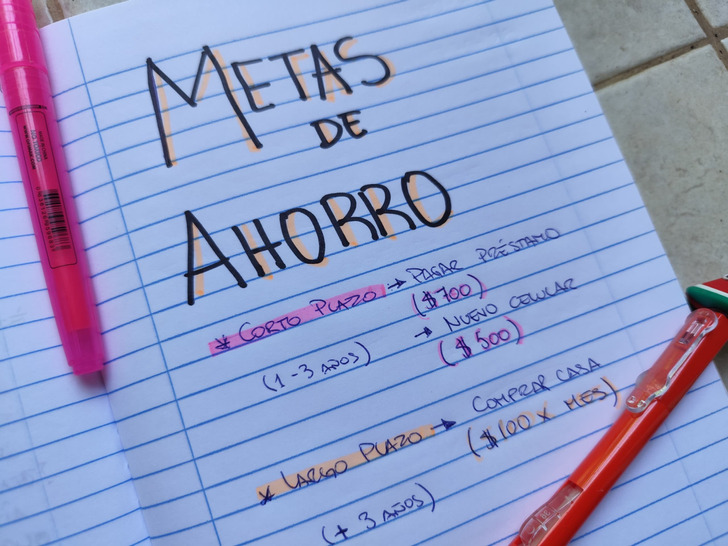 METAS
DE
AHORRO
* CORTO PLAZO → PAGAR PRÉSTAMO
($700)
→ NUEVO CELULAR
(1-3 AÑOS) ($500)
* LARGO PLAZO → COMPRAR CASA
($100 X MES)
(+3 AÑOS)